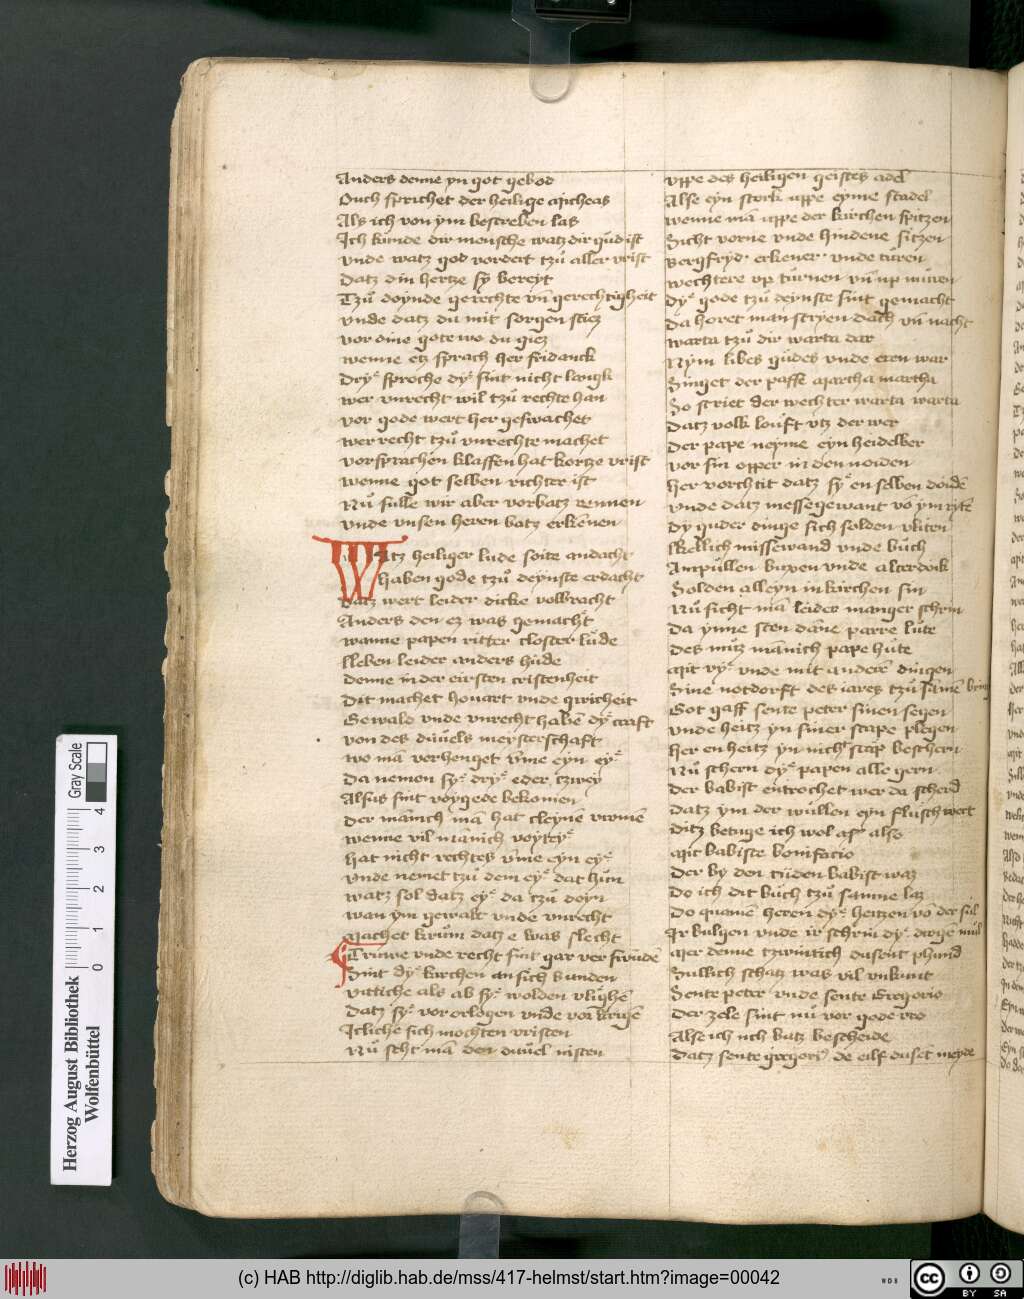 Anders denne yn got gebod
Ouch sprichet der heilige Micheas
Als ich von ym bescreben las
Ich kunde dir mensche watz dir gud ist
vnde watz god vordert tzu aller vrist
Datz din hertze sy bereyt
Tzu doynde gerechte vn gerechtigheit
vnde datz du mit sorgen stez
vor dine gote wo du giez
wenne etz sprach her fridanck
Dry sproche dy sint nicht langk
wer vnrecht wil tzu rechte han
vor gode wert her geswachet
wer recht tzu vnrechte machet
vorsprachen klaffen hat kortze vrist
wenne got selben richter ist
Nu sulle wir aber vorbatz rennen
vnde vnsen heren batz erkenen
Watz heiliger lude soite andacht
haben gode tzu deynste erdacht
Datz wert leider dicke volbracht
Anders den ez was gemacht
wanne papen ritter closter lude
lleben leider anders hude
denne in der eirsten cristenheit
Dit machet houart vnde gyricheit
Gewald vnde vnrecht haben dy craft
von des duuels meysterschaft
wo ma verhenget vme eyn ey
Da nemen sy dry eder tzwey
Alsus sint voygede bekomen
Der manich ma hat cleyne vromen
wenne vil manich voytey
hat nicht rechtes vme eyn ey
vnde nemet tzu dem ey dat hun
watz sol datz ey da tzu doyn
wan ym gewalt vnde vnrecht
Machet krum datz e was slecht
Truwe vnde recht sint gar ver swunden
Sint dy kirchen an sich bunden
vitliche als ab sy wolden vlughe
Datz sy vor orlogen vnde vor krige
Icliche sich mochten vristen
Nu scht ma den duuel nisten
vppe des heiligen geistes adel
Alse eyn stork uppe eyme stadel
wenne ma uppe der kirchen spitzen
Sicht vorne vnde hindene sitzen
Bergfryd erkener vnde turen
wechtere vp turnen vn up muren
Dy gode tzu deynste sint gemacht
Da horet man scryen dach vn nacht
warta tzu dir warta dar
Nym libes gudes vnde eren war
Singet der paffe Martha martha
So scriet der wechter warta warta
Datz volk louft vtz der wer
Der pape neyme eyn heidelber
vor sin opper in den noiden
her vorchtit datz sy en selben doide
vnde datz messegewant vo ym ryte
Dy guder dinge sich solden vliten
Kellich missewand vnde buch
Ampullen buxen vnde alterdoik
Solden alleyn in kirchen sin
Nu sicht ma leider manger schrin
Da ynne sten dane parre lute
Des mutz manich pape hute
Mit vy vnde mit anderen dingen
Sine notdorft des iares tzu samen bring
Got gaff sente peter sinen segen
vnde heitz yn siner scape plegen
her en heitz yn nicht scap beschern
Nu schern dy papen alle gern
Der babist entrochet wer da scherd
Datz ym der wullen eyn flusch wert
Ditz betuge ich wol als also
Mit babiste bonifacio
Der by den tiiden babist was
Do ich dit buch tzu samne las
Do quamen heren dy heitzen vo der sul
Ir bulgen vnde ir schrin dy drogen mul
Mer denne tzwintich dusent phund
Sullich schatz was vil vnkunt
Sente peter vnde sente Gregorio
Der zele sint nu vor gode vro
Alse ich uch batz bescheide
Datz sente gregori de eilf dusent meyde
Herzog August Bibliothek
Wolfenbüttel
Gray Scale
0 1 2 3 4
(c) HAB http://diglib.hab.de/mss/417-helmst/start.htm?image=00042
WDB
cc BY SA